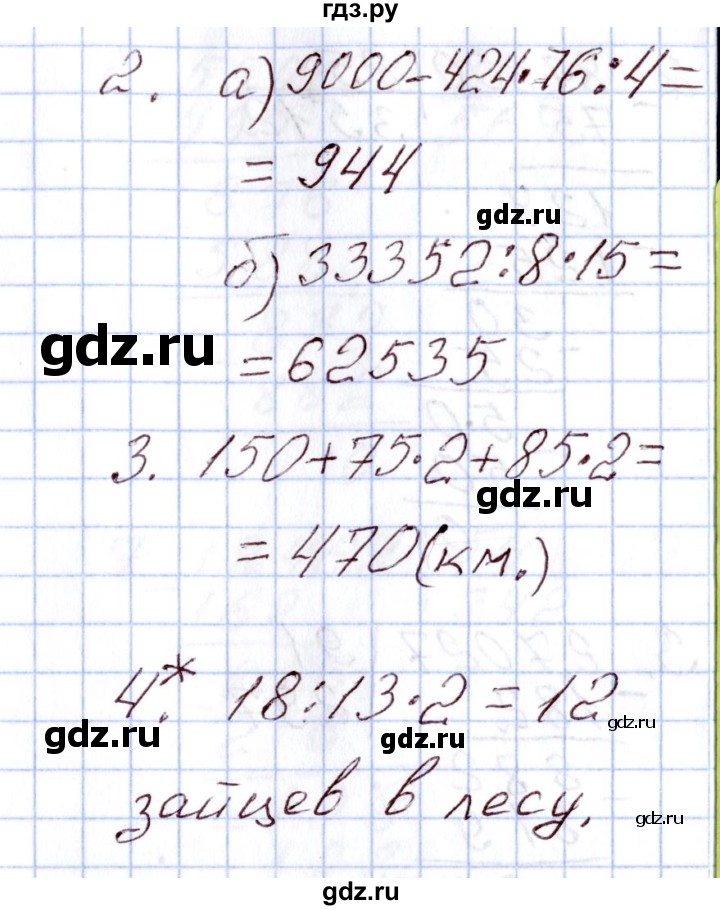 гдз.ру
2. а) 9000-424·76:4=
=944
gdz.ru
б) 33352:8·15=
gdz.ru
=62535
3. 150+75·2+85·2=
gdz.ru
=470(км.)
4.* 18:13·2=12
gdz.ru
gdz.ru
gdz.ru
зайцев в лесу.
gdz.ru
gdz.ru